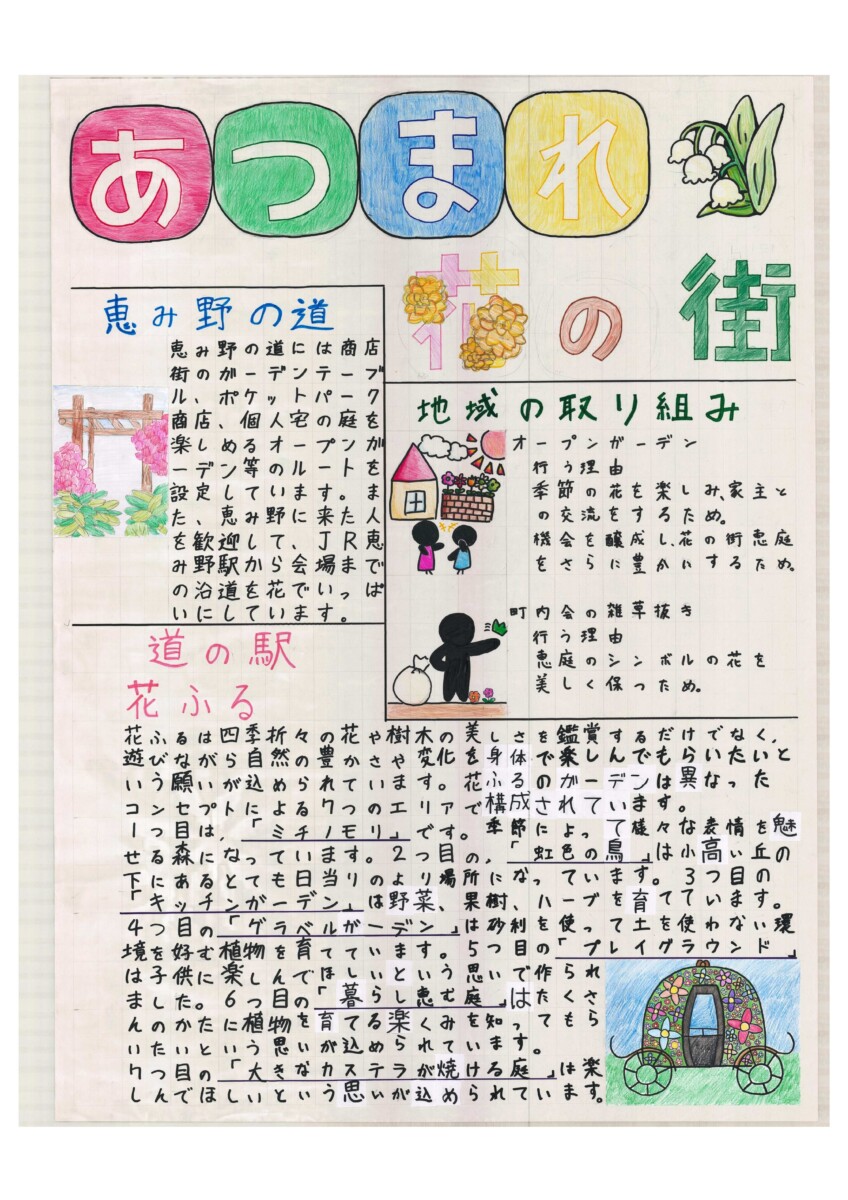 あつまれ
花の街
恵み野の道
恵み野の道には商店
街のガーデンテーブ
ル、ポケットパーク
商店、個人宅の庭を
楽しめるオープンガ
ーデン等のルートを
設定しています。ま
た、恵み野に来た人
を歓迎して、JR恵
み野駅から会場まで
の沿道を花でいっぱ
いにしています。
地域の取り組み
オープンガーデン
行う理由
季節の花を楽しみ、家主と
の交流をするため。
機会を醸成し、花の街恵庭
をさらに豊かいするため。
町内会の雑草抜き
行う理由
恵庭のシンボルの花を
美しく保つため。
道の駅
花ふる
花ふるは四季折々の花や樹木の美しさを鑑賞するだけでなく、
遊びながら自然の豊かさや変化を身体で楽しんでもらいたいと
いう願いが込められています。花ふるのガーデンは異なった
コンセプトによる7つのエリアで構成されています。
一つ目は、「ミチノモリ」です。季節によって様々な表情を魅
せる森になっています。2つ目の、「虹色の鳥」は小高い丘の
下にあるとても日当りのより場所になっています。3つ目の
「キッチンガーデン」は野菜、果樹、ハーブを育てています。
4つ目の「グラベルガーデン」は砂利を使って土を使わない環
境を好む植物を育てています。5つ目の「プレイグラウンド」
は子供に楽しんでほしいという思いで作られ
ました。6つ目の「暮らし恵む庭」はたくさ
んのかたに植物を育てる楽くみを知ってもら
いたいという思いが込められています。
7つ目の「大きなカステラが焼ける庭」は楽
しんでほしいという思いが込められています。